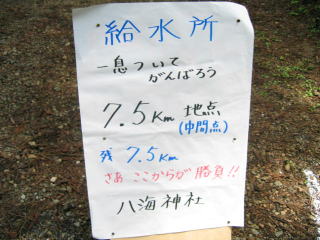 給水所
一息ついて
がんばろう
7.5Km 地点
(中間点)
残 7.5Km
さあ ここからが 勝負!!
八海神社